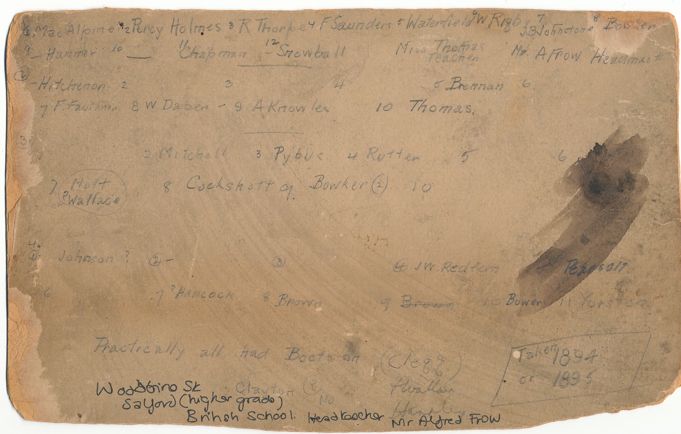 MacAlpine 2 Percy Holmes 3 R Thorpe 4 F Saunders 5 Waterfield 6 W Rigby 7 J B Johnstone 8 Booker
9 - Hanmer 10 — 11 Chapman 12 - Snowball Miss Thomas Teacher Mr. A Frow Headmast
2 - Hitchenon 2 3 4 5 Brennan 6
7 F. Faulkner 8 W Daben - 9 A Knowles 10 Thomas.
2 Mitchell 3 Pybus 4 Rutter 5 6
7 Holt ? Wallace 8 Cockshott 9 Bowker (2) 10
Johnson ? 2 - 3 4 J.W. Redfern Pearson ?
6 7 ? Hancock 8 Brown 9 Brown 10 Bowen 11
Practically all had Boots on (Clegg
Taken 1894
or 1895
Clayton No
Woodbine St
Salford (higher grade)
British School. Headteacher Mr Alfred Frow